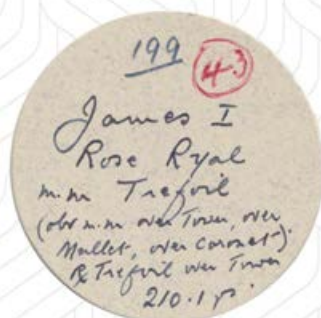 199
43
James I
Rose Ryal
m.m Trefoil
(obv m.m over Tower, over
Mullet, over Coronet).
R Trefoil over Tower
210.1 gr.